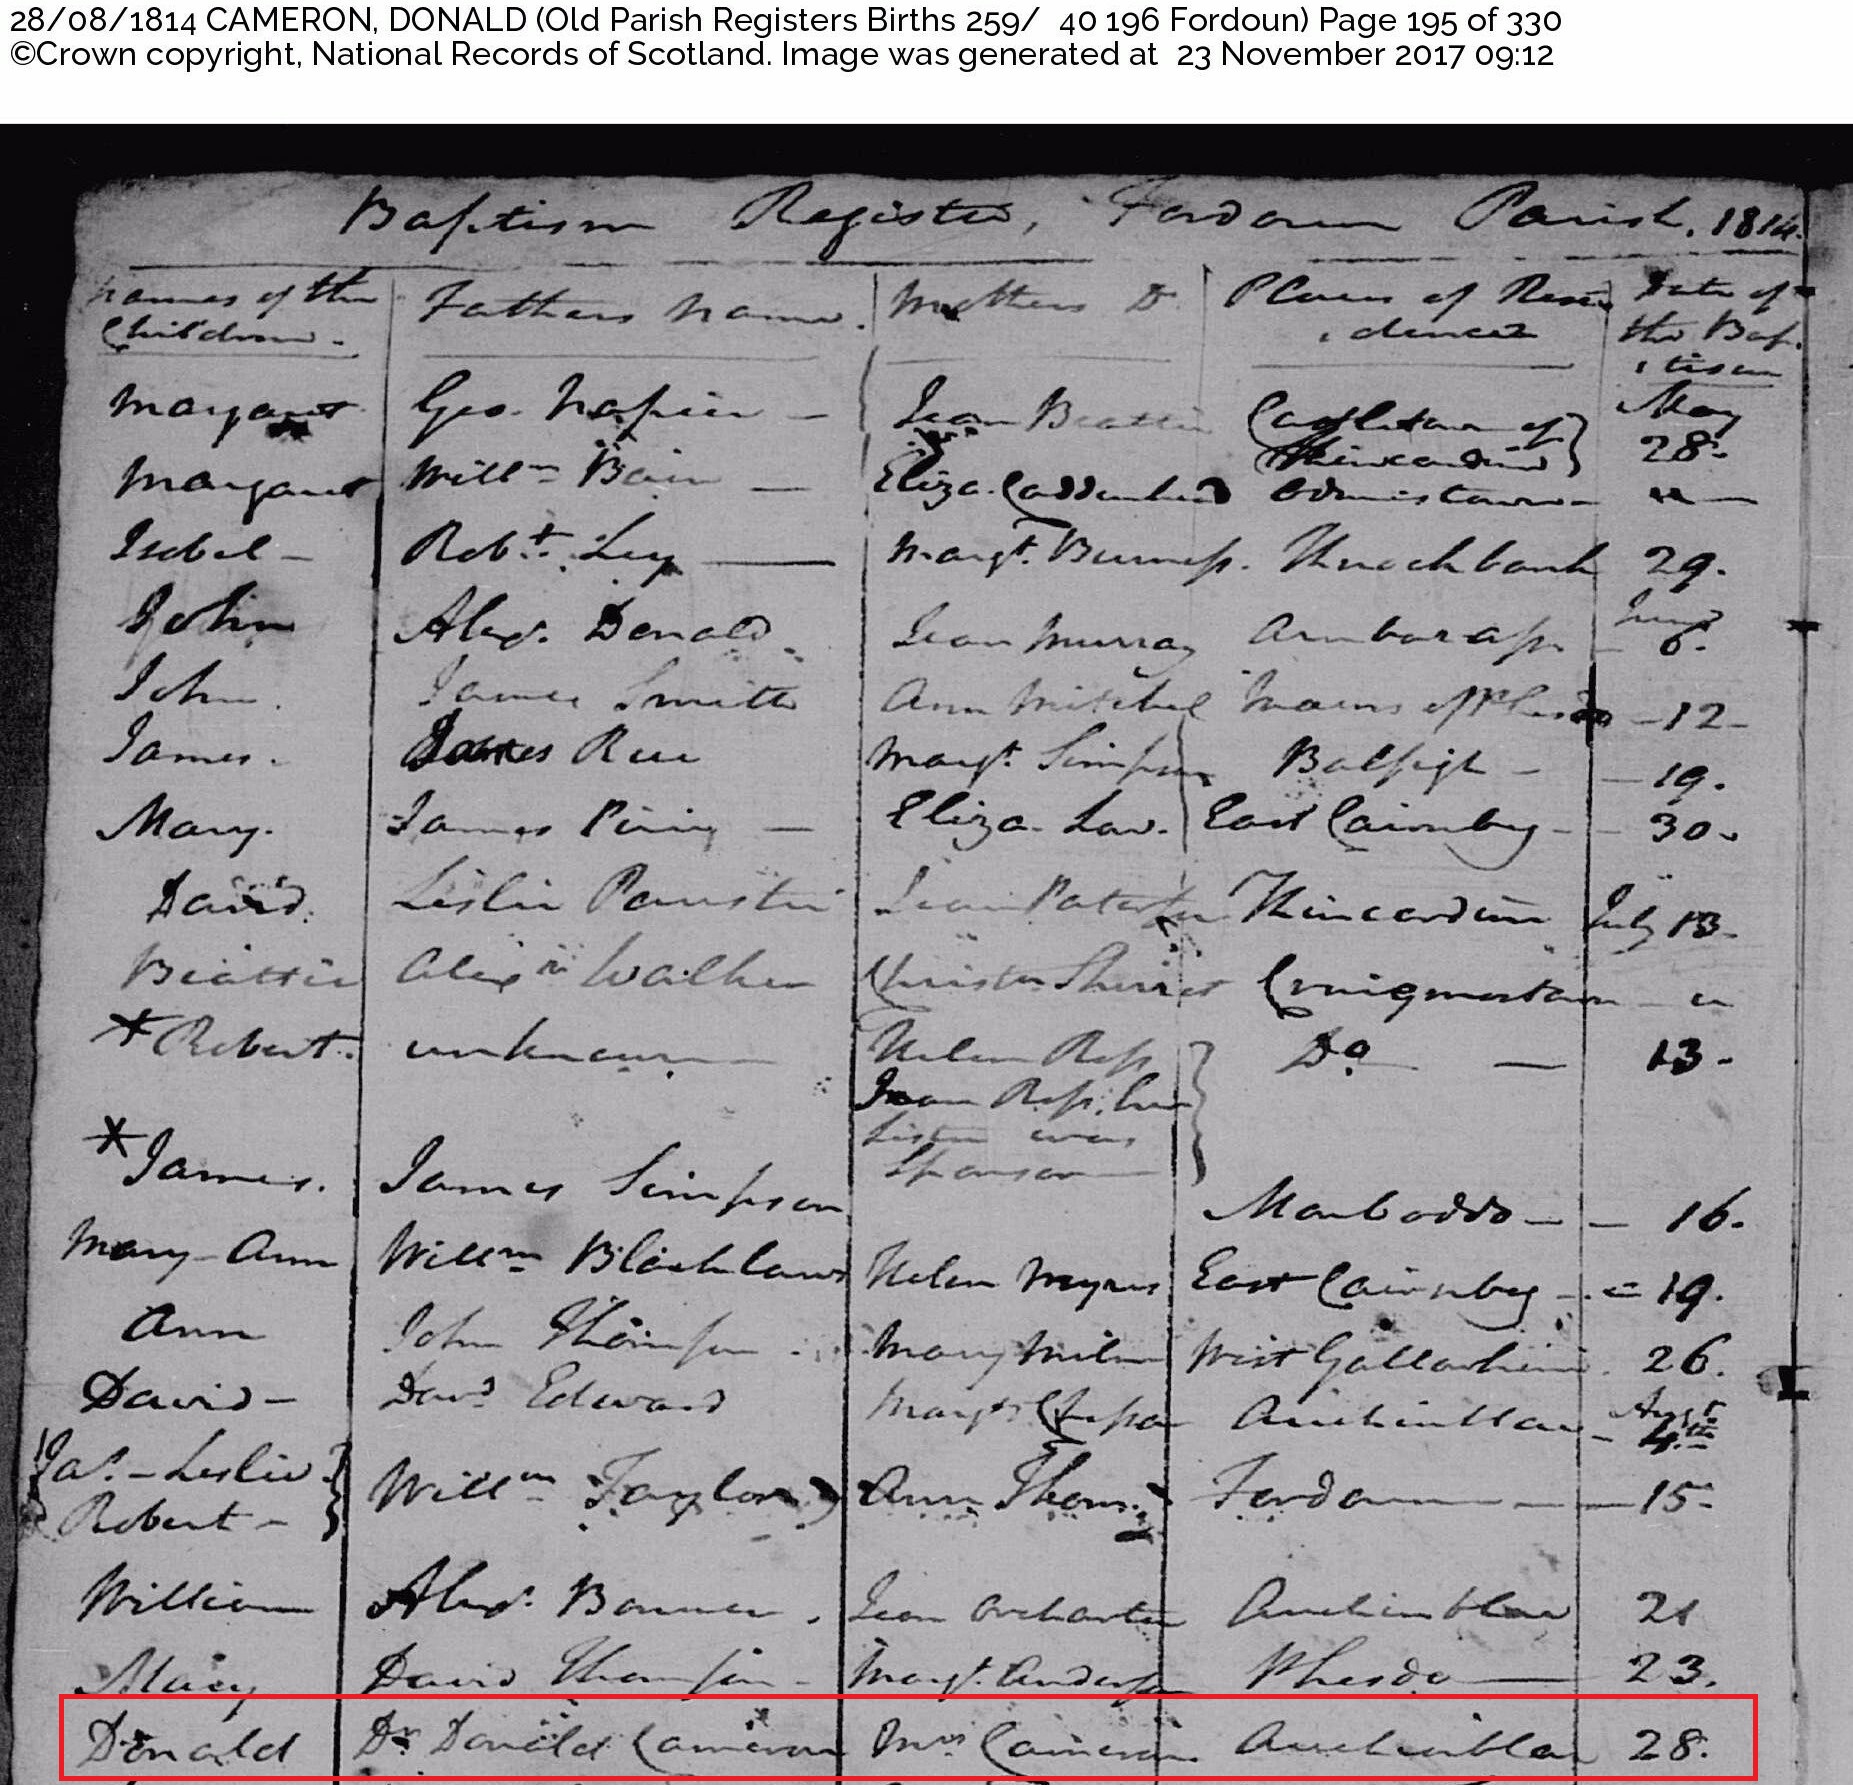 28/08/1814 CAMERON, DONALD (Old Parish Registers Births 259/ 40 196 Fordoun) Page 195 of 330
©Crown copyright, National Records of Scotland. Image was generated at 23 November 2017 09:12
Baptism Register, Fordoun Parish. 1814.
Names of the Fathers Name. Mothers Do Places of Resi Date of
Children. dences the Bap
tism
Margaret Geo. Napier — Jean Beattie Castletown of May
Kincardine 28.
Margaret Willm Bain — Eliza. Caddenhead —
Isobel — Robt. Ley — Margt. Burness. Knockbank 29.
John Alexr. Donald Jean Murray Arnbarass June 6.
John. James Smith Ann Mitchel Mains of Phesdo — 12 —
James. James Rae Margt. Simpson Balfeigh — — 19.
Mary. James Pirie — Eliza. Law. East Cairnbeg — 30.
David. Leslie Jean Paterson Kincardine July 13.
Beattie Alexr Walker Christn Sherret Craigmoston — "
* Robert. unknown — Helen Ross Do — 13.
Jean Ross, her
Sister was
Sponsor —
* James. James Simpson Monboddo — — 16.
Mary-Ann Willm Blacklaws Helen Myers East Cairnbeg — 19.
Ann John Thomson Mary Miln West Gallowhill 26.
David — Davd Edward Margt Auchinblae — Augt
4th
Jas. - Leslie Willm Taylor Ann Thom. Fordoun — — 15 -
Robert -
William Alexr. Bonner. Jean Orchartn Auchinblae 21
Mary David Thomson - Margt. Anderson Phesdo — 23.
Donald Dr Donald Cameron Mrs Cameron Auchinblae 28.